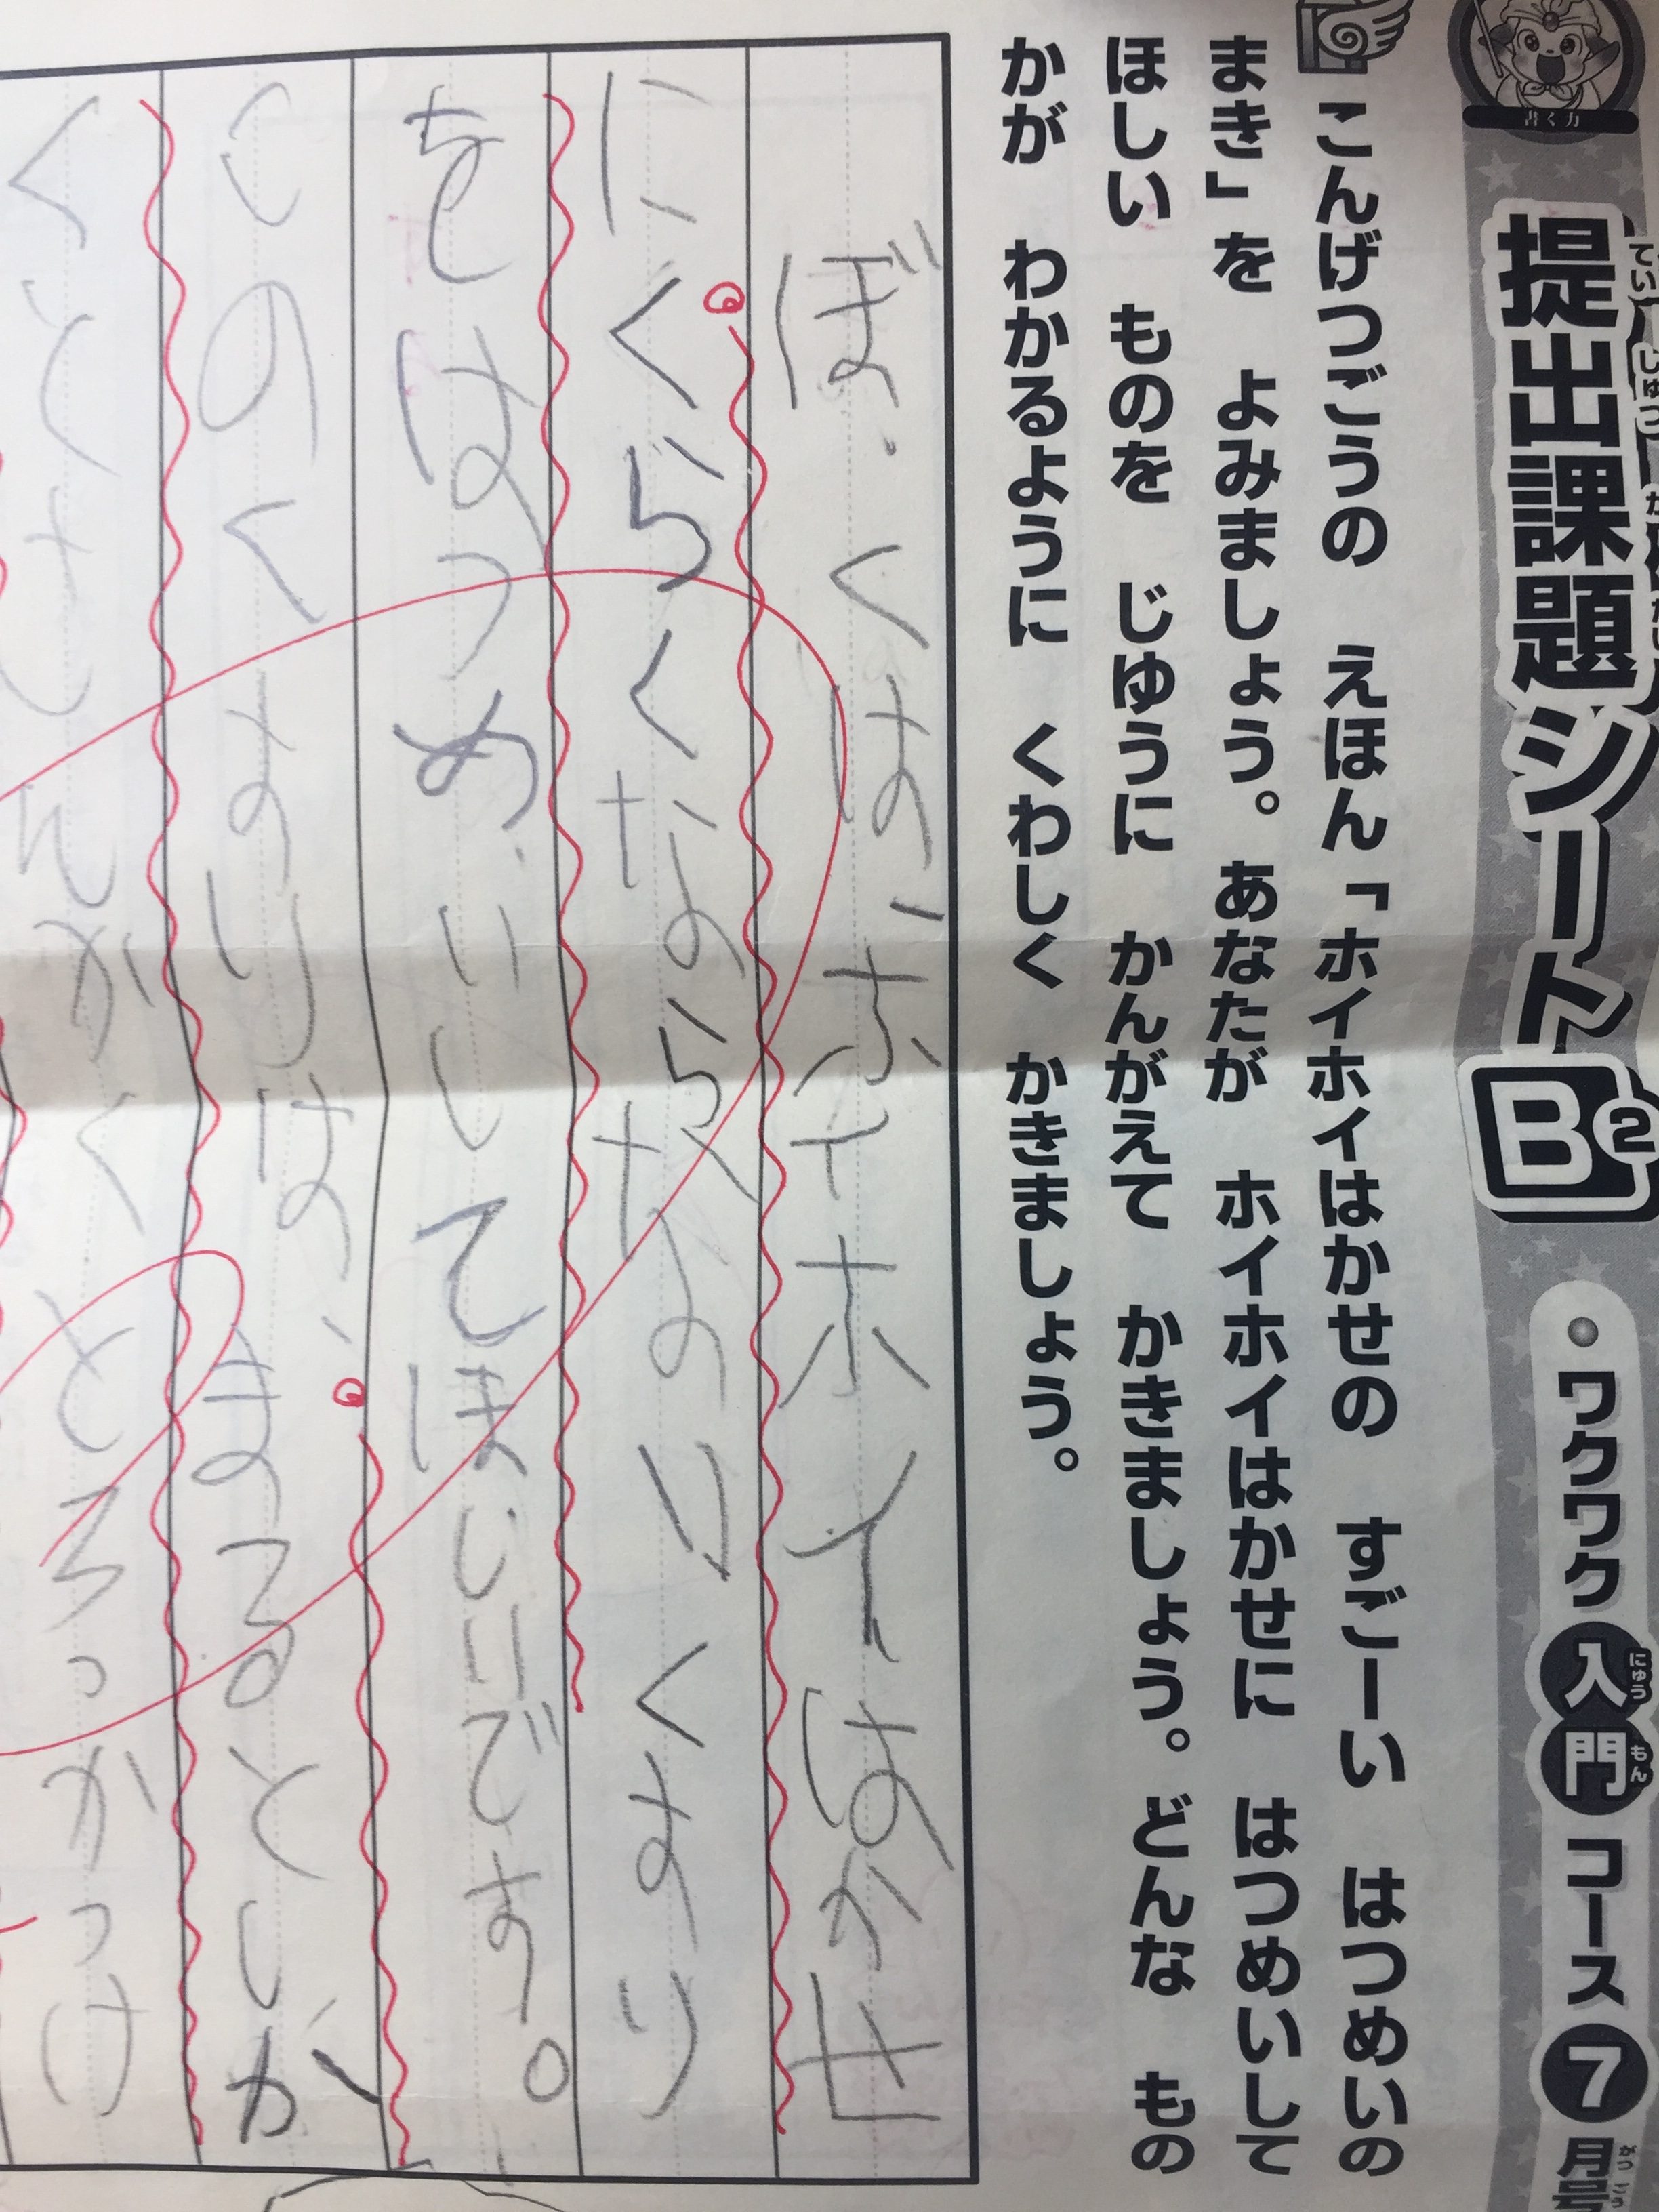 書く力
提出課題シートB2
ていしゅつ
ワクワク入門コース7月号
にゅうもん
がつごう
こんげつごうの えほん「ホイホイはかせの すごーい はつめいの
まき」を よみましょう。あなたが ホイホイはかせに はつめいして
ほしい ものを じゆうに かんがえて かきましょう。どんな もの
かが わかるように くわしく かきましょう。
ぼくは、ホイホイはかせ
にくらくならないくすり
をはつめいしてほしいです。
このくすりは、まるとしか
くとさんかくとろっかっけ